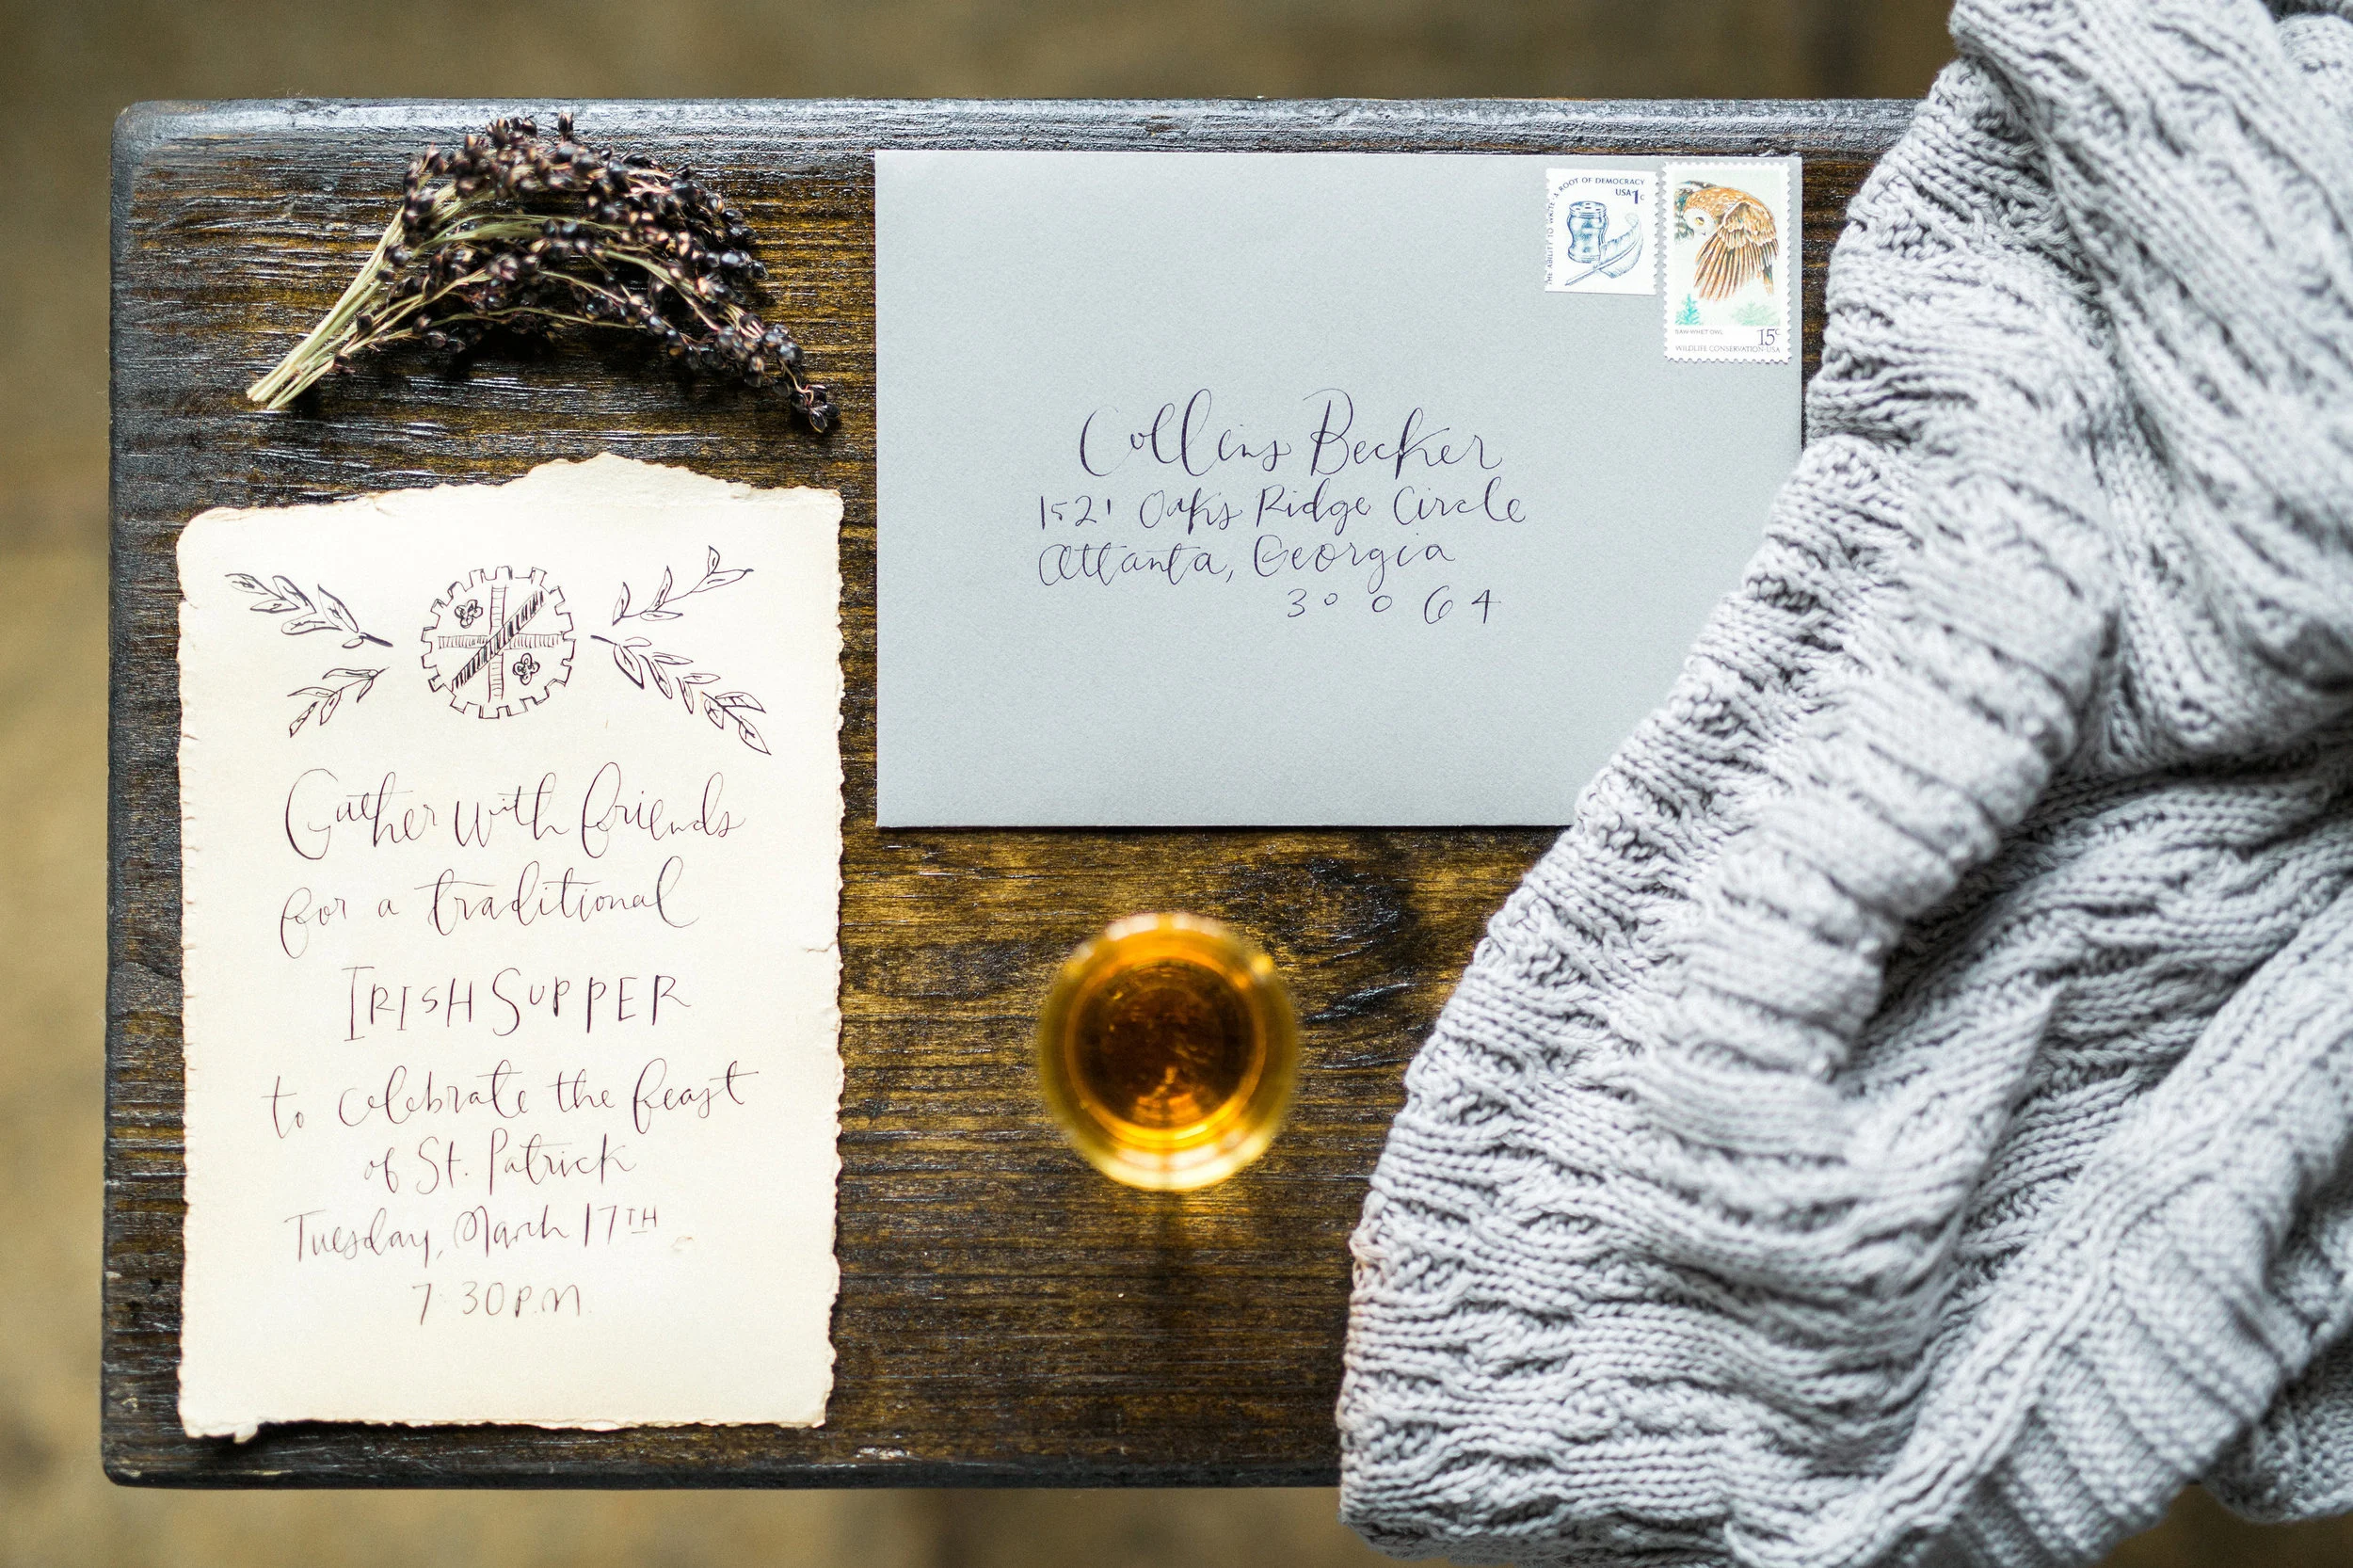 Gather with friends
for a traditional
IRISH SUPPER
to celebrate the feast
of St. Patrick
Tuesday, March 17TH
7:30 P.M.
Collins Becker
1521 Oaks Ridge Circle
Atlanta, Georgia
30064
THE ABILITY TO WRITE. A ROOT OF DEMOCRACY
USA 1c
SAW-WHET OWL
15c
WILDLIFE CONSERVATION USA